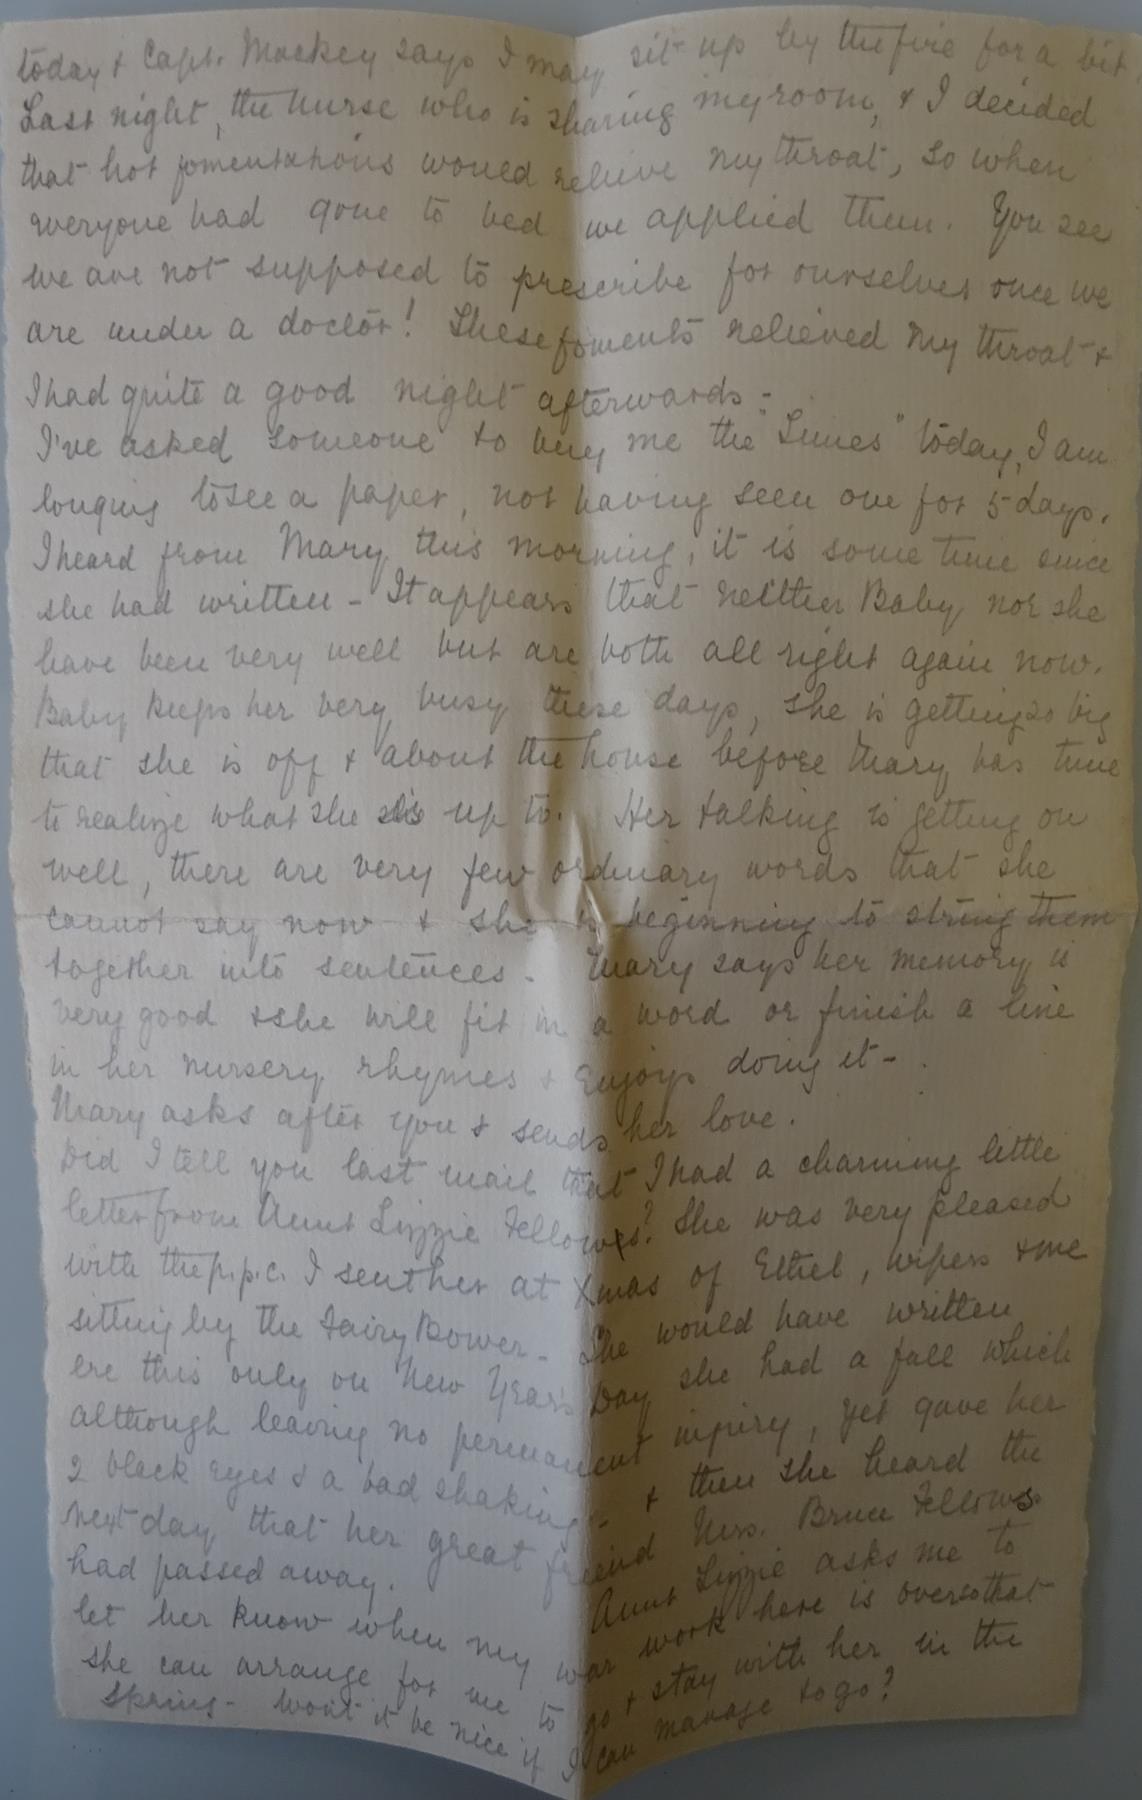 today & Capt. Mackey says I may sit up by the fire for a bit
Last night, the nurse who is sharing my room, & I decided
that hot fomentations would relieve my throat, so when
everyone had gone to bed we applied them. You see
we are not supposed to prescribe for ourselves once we
are under a doctor! These foments relieved my throat &
I had quite a good night afterwards -
I've asked someone to buy me the "Times" today, I am
longing to see a paper, not having seen one for 5 days.
I heard from Mary this morning, it is some time since
she had written - It appears that neither Baby nor she
have been very well but are both all right again now.
Baby keeps her very busy these days, she is getting so big
that she is off & about the house before Mary has time
to realize what she is up to. Her talking is getting on
well, there are very few ordinary words that she
cannot say now & she is beginning to string them
together into sentences - Mary says her memory is
very good & she will fit in a word or finish a line
in her nursery rhymes & enjoys doing it -
Mary asks after you & sends her love.
Did I tell you last mail that I had a charming little
letter from Aunt Lizzie Fellows? She was very pleased
with the p.p.c. I sent her at Xmas of Ethel, wipers & me
sitting by the Fairy Bower - She would have written
ere this only on New Year's Day she had a fall which
although leaving no permanent injury, yet gave her
2 black eyes & a bad shaking - & then she heard the
next day that her great friend Mrs. Bruce Fellows
had passed away. Aunt Lizzie asks me to
let her know when my war work here is over so that
she can arrange for me to go & stay with her in the
Spring - Won't it be nice if I can manage to go?